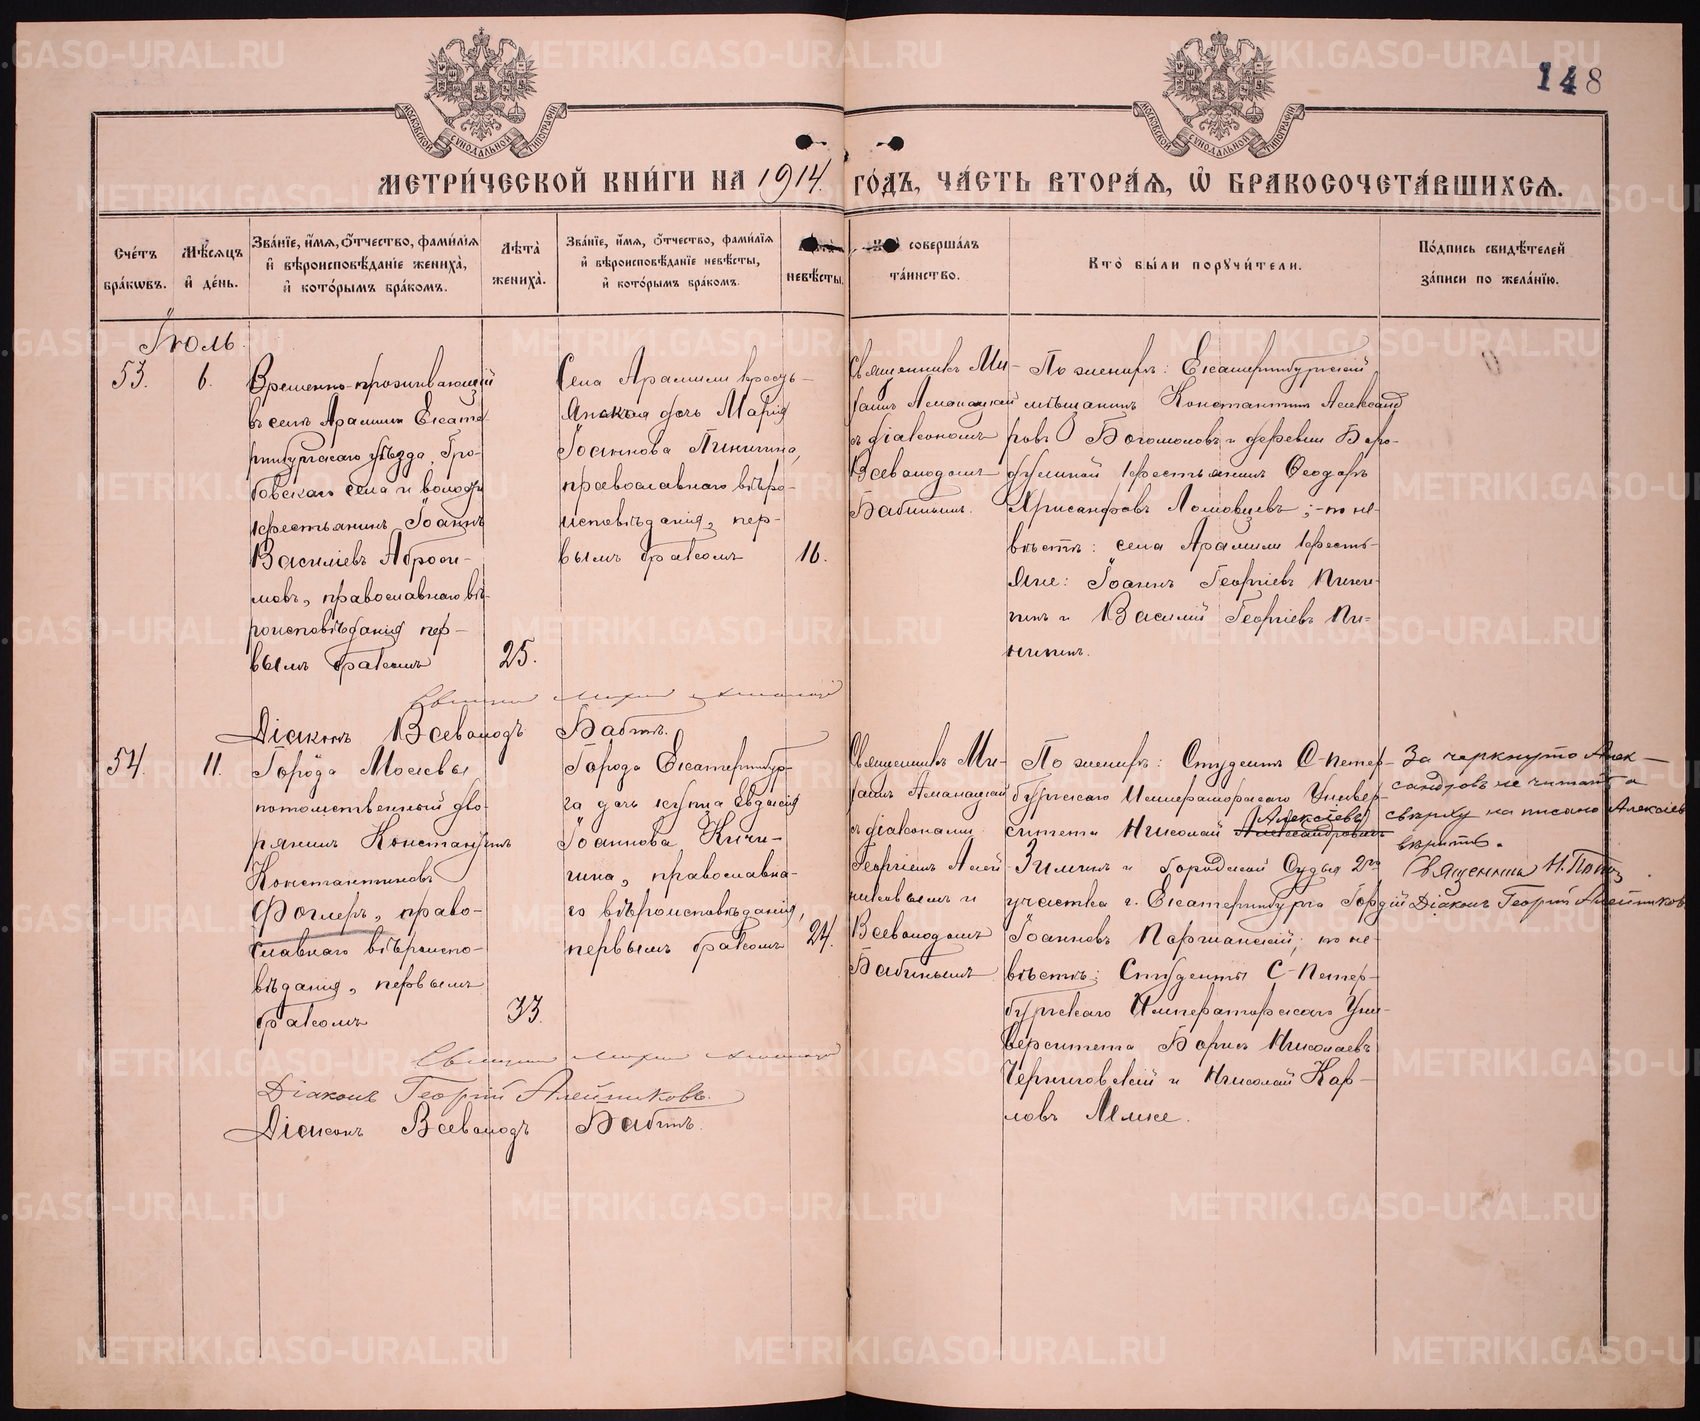 148
МОСКОВСКОЙ СУНОДАЛЬНОЙ ТИПОГРАФІИ
МОСКОВСКОЙ СУНОДАЛЬНОЙ ТИПОГРАФІИ
МЕТРИ́ЧЕСКОЙ КНИ́ГИ НА 1914 ГО́ДЪ, ЧА́СТЬ ВТОРА́Я, Ѡ БРАКОСОЧЕТА́ВШИХСЯ.
Сче́тъ бра́кѡвъ.
Мѣ́сяцъ и де́нь.
Зва́нїе, и́мя, ѻ́тчество, фами́лїя
и вѣроисповѣ́данїе жениха̀,
и кото́рымъ бра́комъ.
Лѣта̀ жениха̀.
Зва́нїе, и́мя, ѻ́тчество, фами́лїя
и вѣроисповѣ́данїе невѣ́сты,
и кото́рымъ бра́комъ.
невѣ́сты.
соверша́лъ
та́инство.
Кто̀ бы́ли поручи́тели.
По́дпись свидѣ́телей
за́писи по жела́нїю.
Іюль.
53.
6.
Временно-проживающій
въ селѣ Арамили Екате-
ринбургскаго уѣзда, Гро-
бовскаго села и волости
крестьянинъ Іоаннъ
Василіевъ Аброси-
мовъ, православнаго вѣ-
роисповѣданія пер-
вымъ бракомъ
25.
Села Арамили кресть-
янская дочь Марія
Іоаннова Пиничина,
православнаго вѣро-
исповѣданія, пер-
вымъ бракомъ
16.
Священникъ Ми-
хаилъ
съ діакономъ
Всеволодомъ
Бабинымъ.
По женихѣ: Екатеринбургскій
мѣщанинъ Константинъ Александ-
ровъ Богомоловъ и деревни Боро-
дулиной крестьянинъ Ѳеодоръ
Хрисанфовъ Ломовцевъ; - по не-
вѣстѣ: села Арамили кресть-
яне: Іоаннъ Георгіевъ Пини-
гинъ и Василій Георгіевъ Пи-
нигинъ.
Діаконъ Всеволодъ Бабинъ.
54.
11.
Города Москвы
потомственный дво-
рянинъ Константинъ
Константиновъ
Фоглеръ, право-
славнаго вѣроиспо-
вѣданія, первымъ
бракомъ
33.
Города Екатеринбур-
га дочь купца Евдокія
Іоаннова Кичи-
гина, православна-
го вѣроисповѣданія,
первымъ бракомъ
24.
Священникъ Ми-
хаилъ
съ діаконами
Георгіемъ Алей-
никовымъ и
Всеволодомъ
Бабинымъ
По женихѣ: Студентъ С-Петер-
бургскаго Императорскаго Универ-
ситета Николай Алексѣевъ Александровичъ
Зиминъ и Городской Судья 2го
участка г. Екатеринбурга Гордій
Іоанновъ; по не-
вѣстѣ: Студенты С-Петер-
бургскаго Императорскаго Уни-
верситета Борисъ Николаевъ
Черниговскій и Николай Кар-
ловъ Лемке.
Зачеркнуто Алек-
сандровъ не читать а
сверху написано Алексѣевъ
вѣрить.
Священникъ
Діаконъ Георгій Алейниковъ
Діаконъ Георгій Алейниковъ.
Діаконъ Всеволодъ Бабинъ.
METRIKI.GASO-URAL.RU